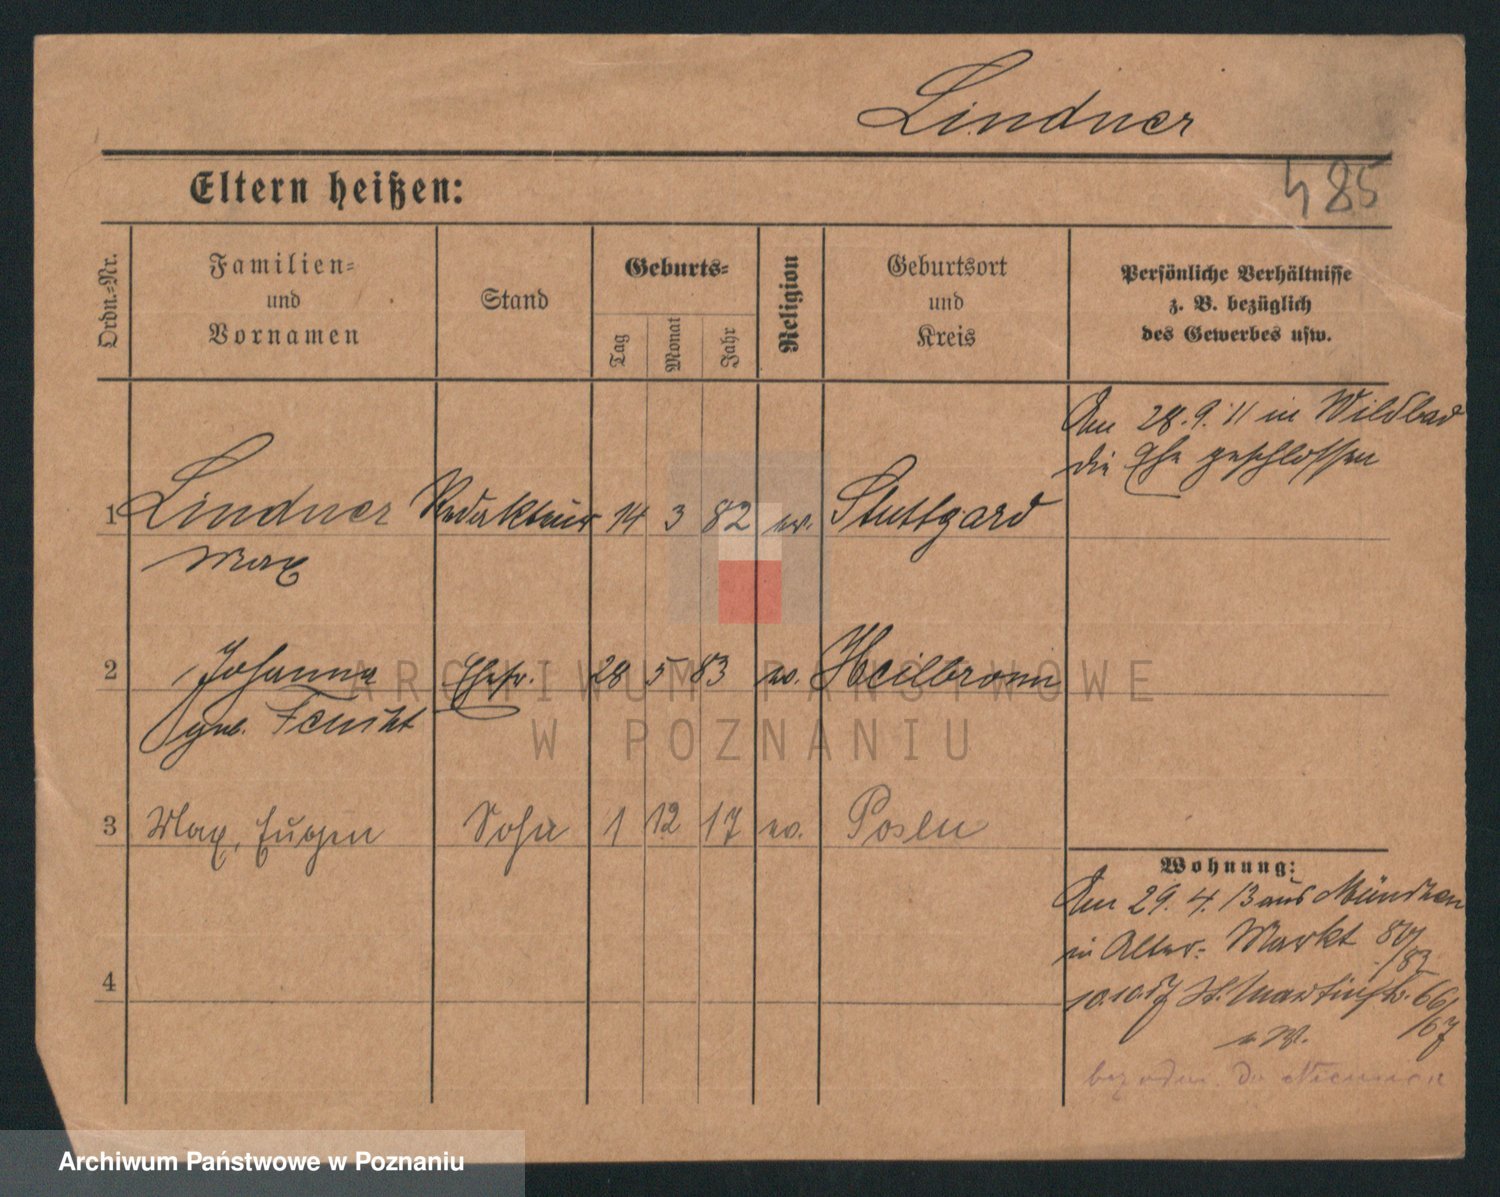 Lindner
485
Eltern heißen:
Ordn.=Nr.
Familien=
und
Vornamen
Stand
Geburts=
Tag
Monat
Jahr
Religion
Geburtsort
und
Kreis
Persönliche Verhältnisse
z. B. bezüglich
des Gewerbes usw.
Am 28.9.11 in Wildbad
die Ehe geschlossen
1 Lindner Redakteur 14 3 82 ev. Stuttgard
Max
2 Johanna Ehefr. 28 5 83 ev. Heilbronn
geb.
3 Max, Eugen Sohn 1 12 17 ev. Posen
Wohnung:
Am 29.4.13 aus München
in Alter= Markt 80/
/83
10.10.17 St. Martinstr. 66/
/67
4
do Niemiec
ARCHIWUM PAŃSTWOWE
W POZNANIU
Archiwum Państwowe w Poznaniu